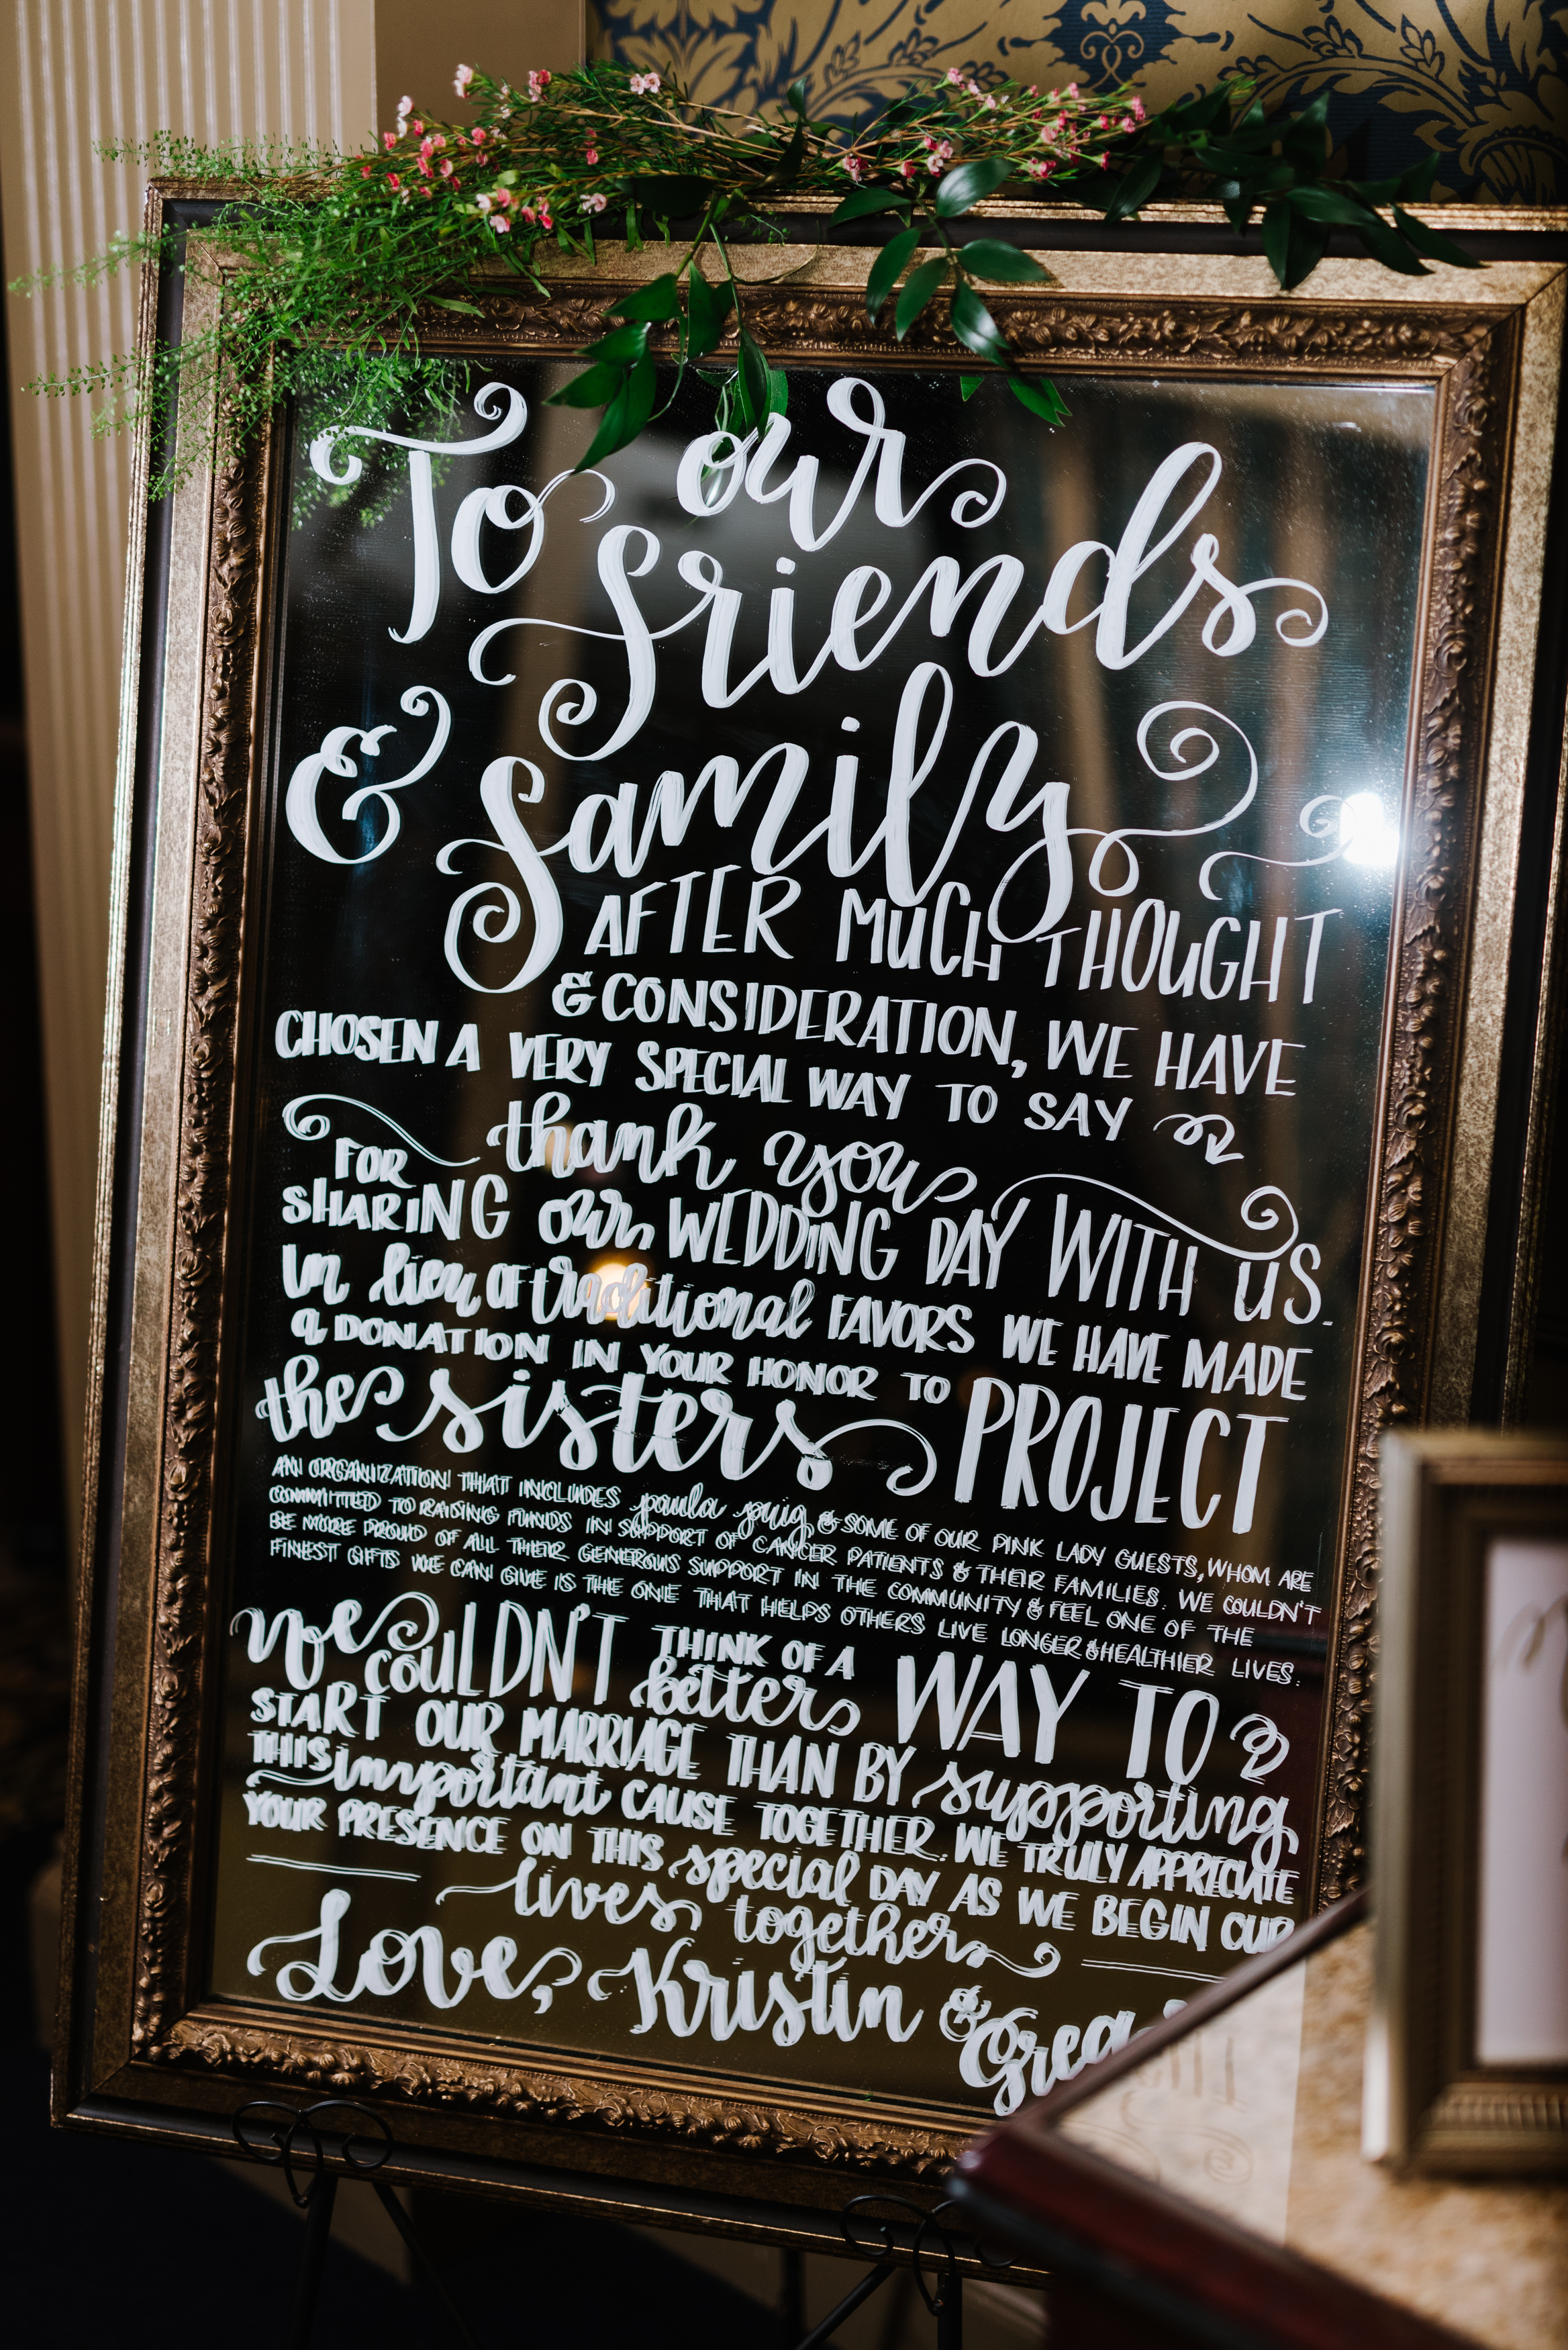 To our
friends
& family
AFTER MUCH THOUGHT
& CONSIDERATION, WE HAVE
CHOSEN A VERY SPECIAL WAY TO SAY
thank you
FOR
SHARING our WEDDING DAY WITH US.
In lieu OF traditional FAVORS WE HAVE MADE
a DONATION IN YOUR HONOR TO
the sisters PROJECT
AN ORGANIZATION THAT INCLUDES paula puig & SOME OF OUR PINK LADY GUESTS, WHOM ARE
COMMITTED TO RAISING FUNDS IN SUPPORT OF CANCER PATIENTS & THEIR FAMILIES. WE COULDN'T
BE MORE PROUD OF ALL THEIR GENEROUS SUPPORT IN THE COMMUNITY & FEEL ONE OF THE
FINEST GIFTS WE CAN GIVE IS THE ONE THAT HELPS OTHERS LIVE LONGER & HEALTHIER LIVES.
We COULDN'T THINK OF A better WAY TO
START OUR MARRIAGE THAN BY supporting
THIS important CAUSE TOGETHER. WE TRULY APPRECIATE
YOUR PRESENCE ON THIS special DAY AS WE BEGIN OUR
lives together
Love, Kristin & Greg